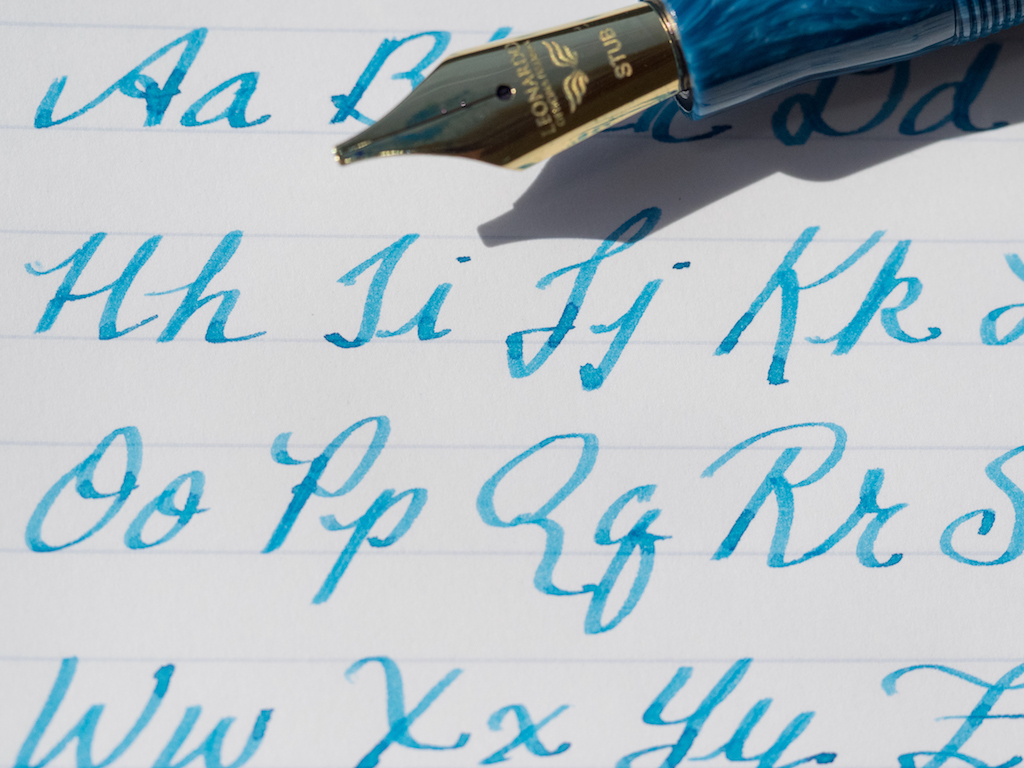 Aa B Dd
LEONARDO
STUB
Hh Ii Jj Kk
Oo Pp Qq Rr S
Ww Xx Yy Z